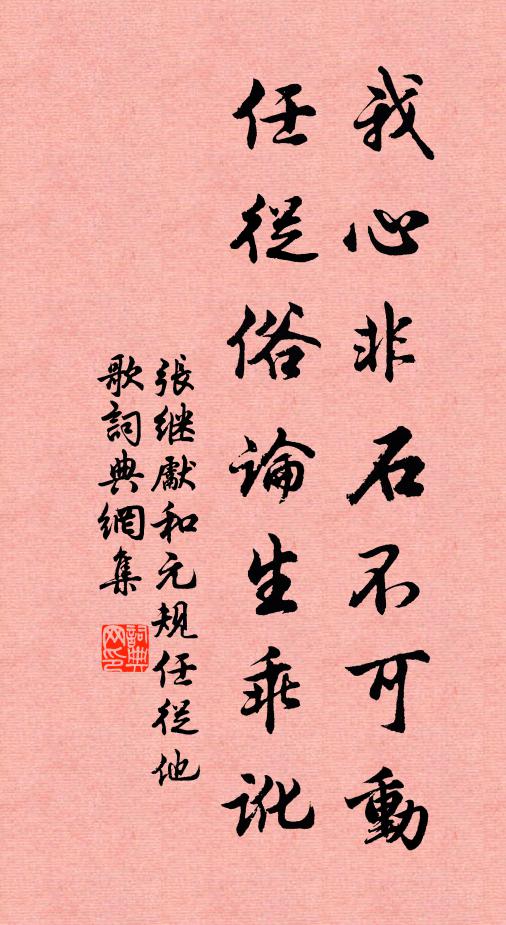 我心非石不可動
任從俗論生乖訛
張继獻和元規任從他
歌詞典網集
詞典
网印